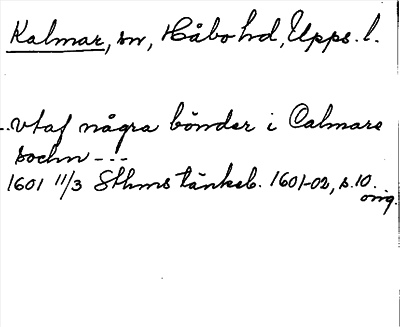 Kalmar, sn, Håbo hd, Upps. l.
...vtaf några bönder i Calmare
sochn ---
1601 11/3 Sthms tänkeb. 1601-02, s. 10.
orig.